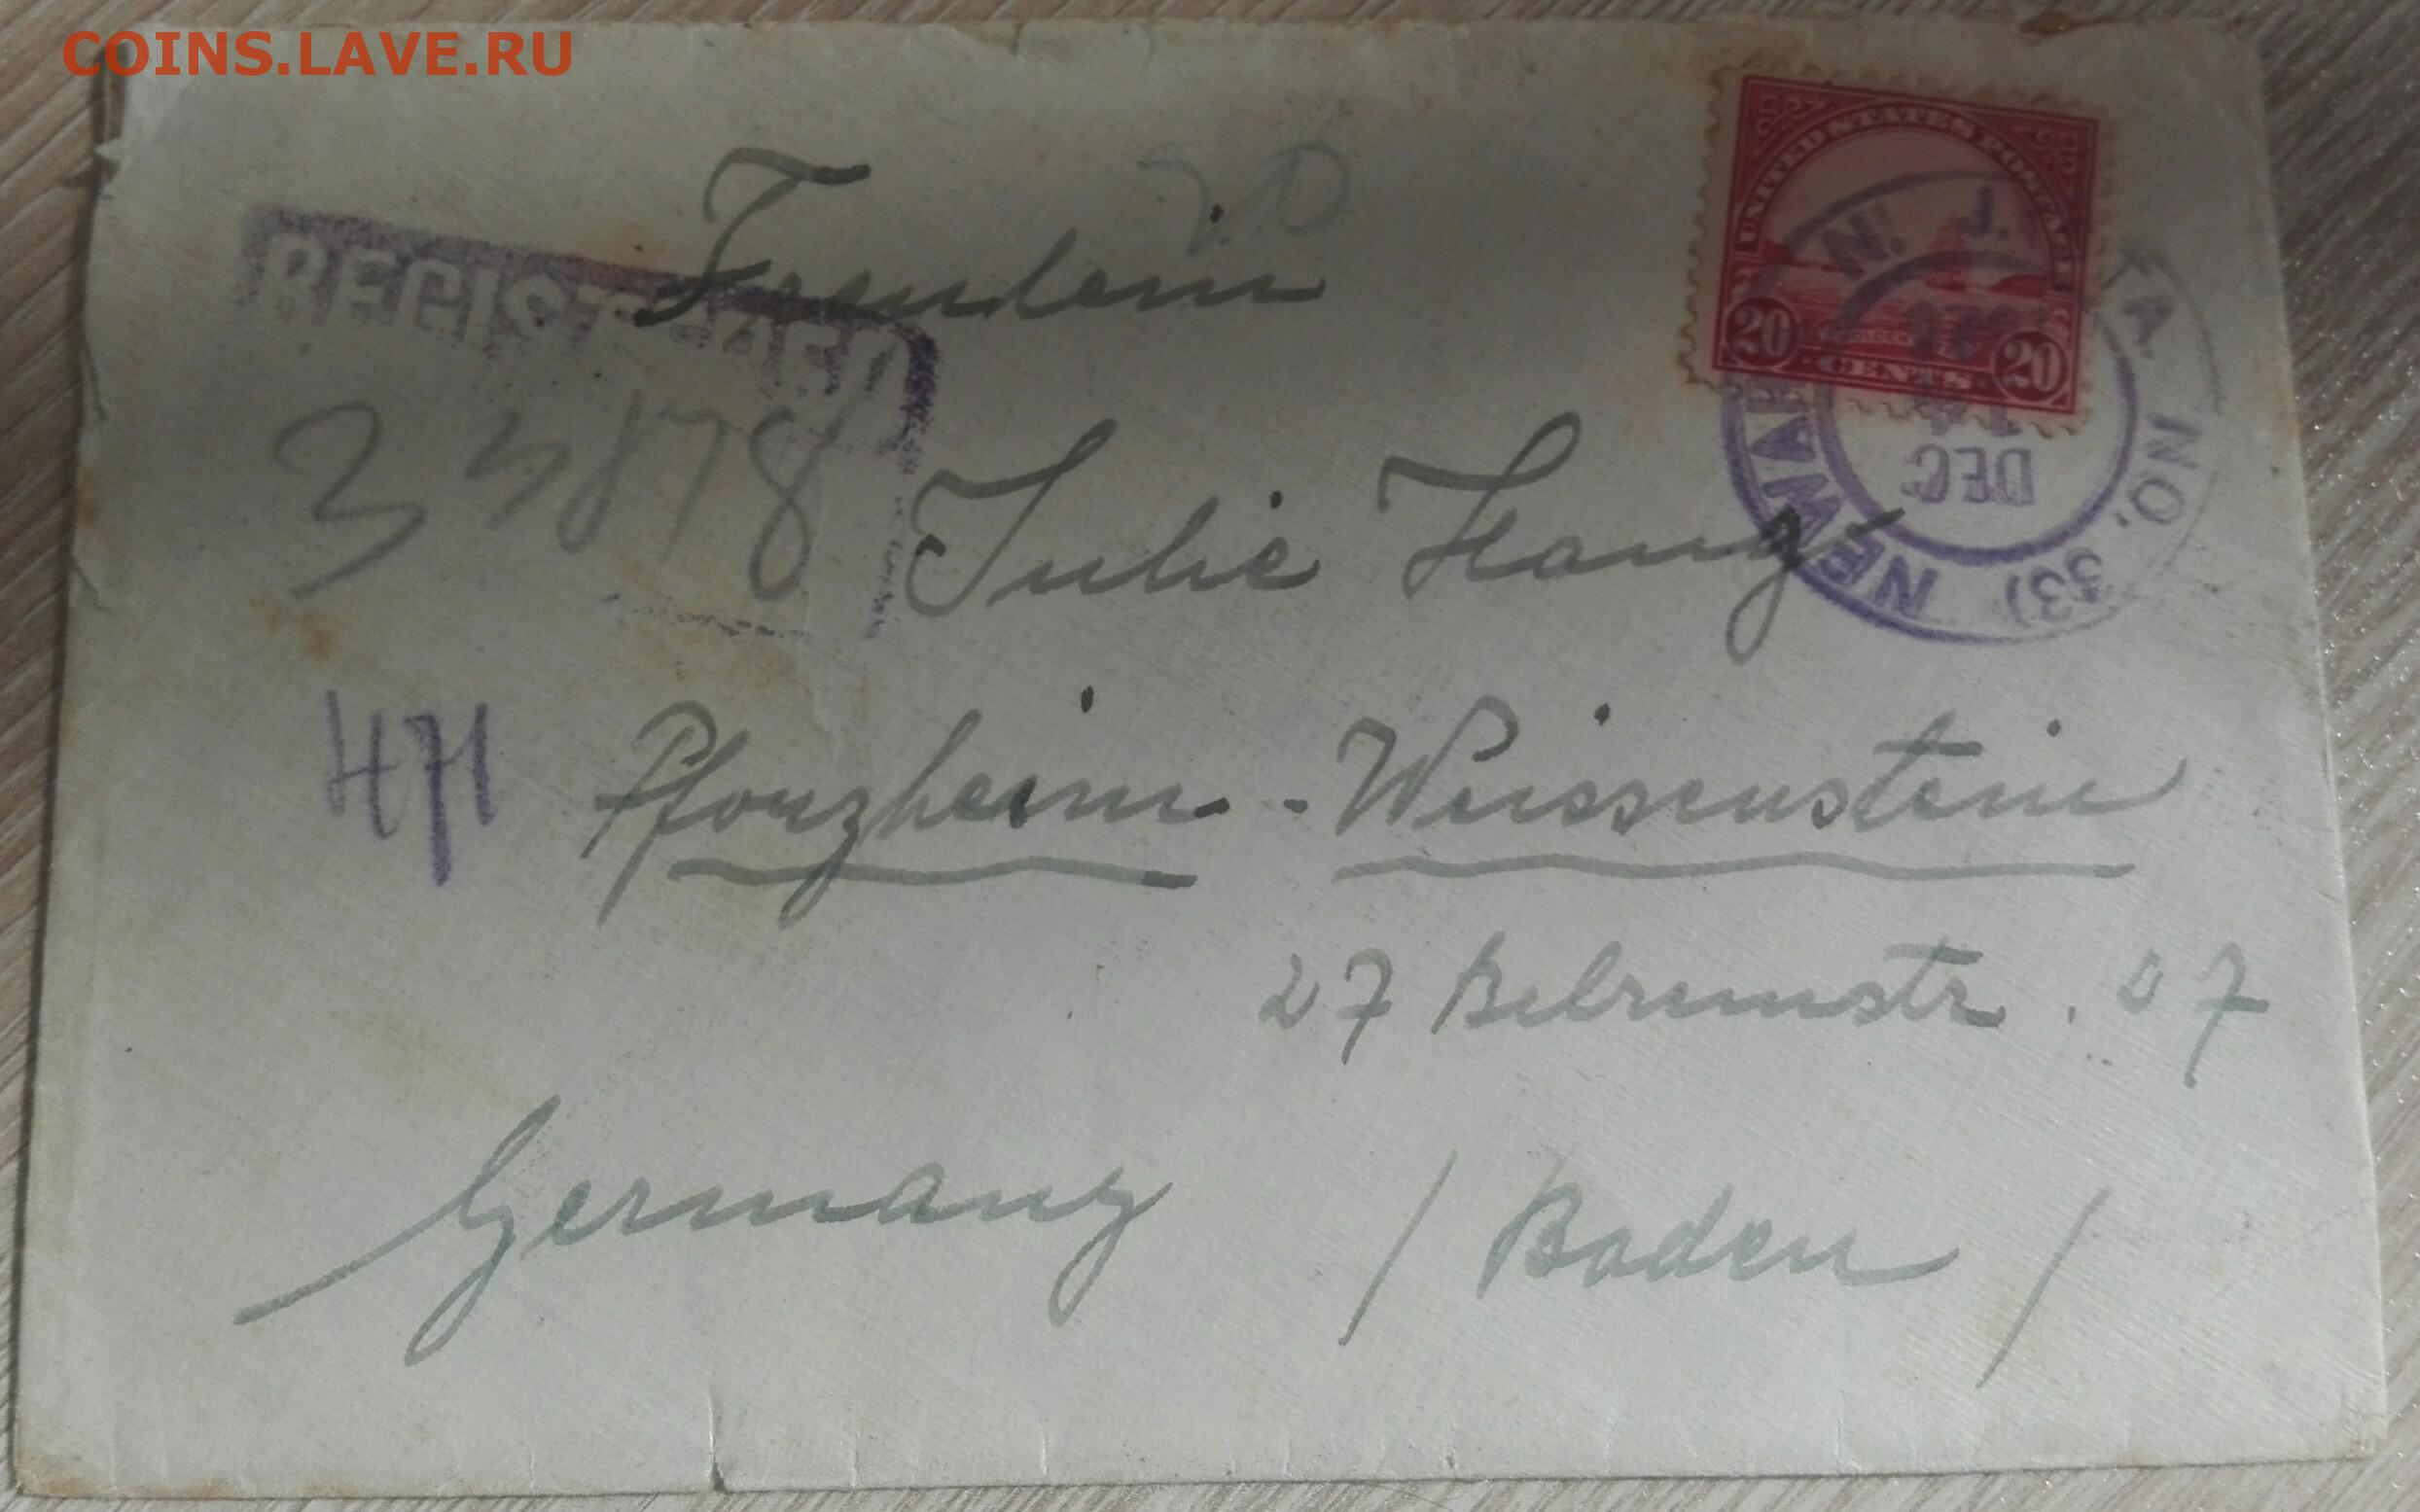 COINS.LAVE.RU
20
UNITED STATES POSTAGE
20 CENTS 20
NEWARK N. J. STA. NO. 33)
DEC
REGISTERED
Freulein
Julie Haug
471
Pforzheim - Weissenstein
27 Belremstr. 27
Germany / Baden /